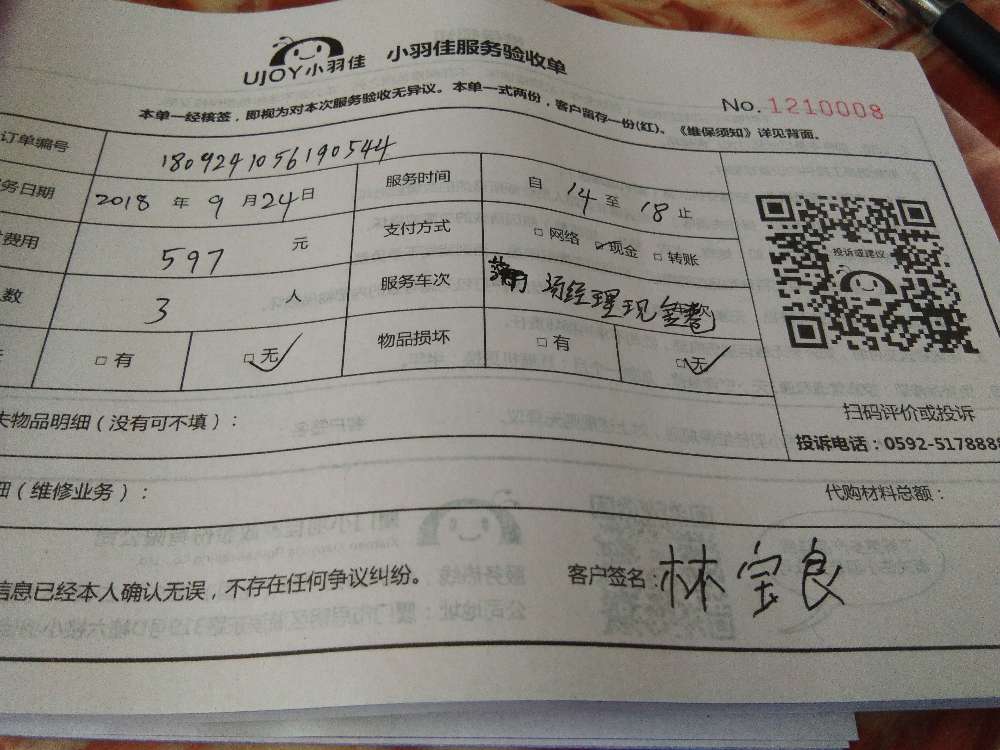 UJOY小羽佳 小羽佳服务验收单
No.1210008
本单一经核签，即视为对本次服务验收无异议。本单一式两份，客户留存一份(红)。《维保须知》详见背面。
订单编号 1809241056190544
务日期 2018 年 9 月 24 日 服务时间 自 14 至 18 止
费用 597 元 支付方式 □网络 ☑现金 □转账
数 3 人 服务车次 须经理现金
□有 ☑无 物品损坏 □有 ☑无
投诉或建议
扫码评价或投诉
投诉电话：0592-5178888
失物品明细（没有可不填）：
细（维修业务）： 代购材料总额：
信息已经本人确认无误，不存在任何争议纠纷。 客户签名：林宝良